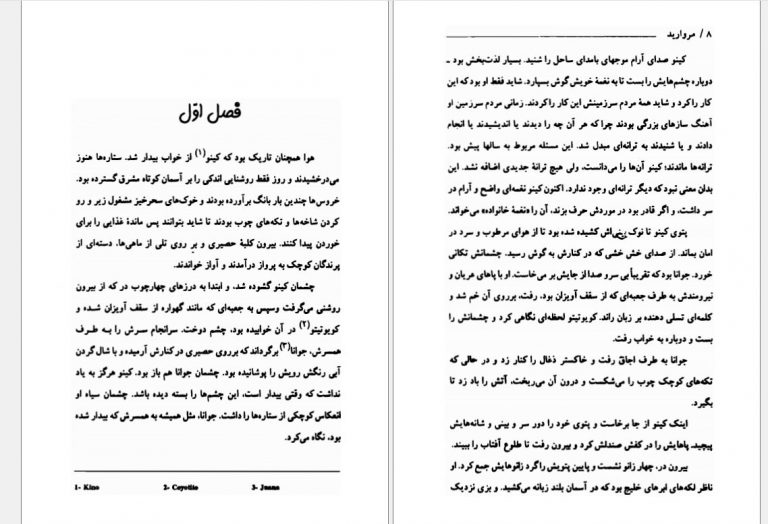 فصل اوّل
هوا همچنان تاریک بود که کینو(۱) از خواب بیدار شد. ستاره‌ها هنوز
می‌درخشیدند و روز فقط روشنایی اندکی را بر آسمان کوتاه مشرق گسترده بود.
خروس‌ها چندین بار بانگ برآورده بودند و خوک‌های سحرخیز مشغول زیر و رو
کردن شاخه‌ها و تکه‌های چوب بودند تا شاید بتوانند پس ماندهٔ غذایی را برای
خوردن پیدا کنند. بیرون کلبهٔ حصیری و بر روی تلی از ماهی‌ها، دسته‌ای از
پرندگان کوچک به پرواز درآمدند و آواز خواندند.
چشمان کینو گشوده شد، و ابتدا به درزهای چهارچوب در که از بیرون
روشنی می‌گرفت وسپس به جعبه‌ای که مانند گهواره از سقف آویزان شده و
کویوتیتو(۲) در آن خوابیده بود، چشم دوخت. سرانجام سرش را به طرف
همسرش، جوانا(۳) برگرداند که برروی حصیری در کنارش آرمیده و با شال گردن
آبی رنگش رویش را پوشانیده بود. چشمان جوانا هم باز بود. کینو هرگز به یاد
نداشت که وقتی بیدار است، این چشم‌ها را بسته دیده باشد. چشمان سیاه او
انعکاس کوچکی از ستاره‌ها را داشت. جوانا، مثل همیشه به همسرش که بیدار شده
بود، نگاه می‌کرد.
1- Kino 2- Coyotito 3- Juana
۸ / مروارید
کینو صدای آرام موجهای بامدای ساحل را شنید. بسیار لذت‌بخش بود ـ
دوباره چشم‌هایش را بست تا به نغمهٔ خویش گوش بسپارد. شاید فقط او بود که این
کار را کرد و شاید همهٔ مردم سرزمینش این کار را کردند. زمانی مردم سرزمین او
آهنگ سازهای بزرگی بودند چرا که هر آن چه را دیدند یا اندیشیدند یا انجام
دادند و یا شنیدند به ترانه‌ای مبدل شد. این مسئله مربوط به سالها پیش بود.
ترانه‌ها ماندند؛ کینو آن‌ها را می‌دانست، ولی هیچ ترانهٔ جدیدی اضافه نشد. این
بدان معنی نبود که دیگر ترانه‌ای وجود ندارد. اکنون کینو نغمه‌ای واضح و آرام در
سر داشت، و اگر قادر بود در موردش حرف بزند، آن را «نغمهٔ خانواده» می‌خواند.
پتوی کینو تا نوک بینی‌اش کشیده شده بود تا از هوای مرطوب و سرد در
امان بماند. از صدای خش خشی که در کنارش به گوش رسید، چشمانش تکانی
خورد. جوانا بود که تقریباً بی سرو صدا از جایش بر می‌خاست. او با پاهای عریان و
نیرومندش به طرف جعبه‌ای که از سقف آویزان بود، رفت، برروی آن خم شد و
کلمه‌ای تسلی دهنده بر زبان راند. کویوتیتو لحظه‌ای نگاهی کرد و چشمانش را
بست و دوباره به خواب رفت.
جوانا به طرف اجاق رفت و خاکستر ذغال را کنار زد و در حالی که
تکه‌های کوچک چوب را می‌شکست و درون آن می‌ریخت، آتش را باد زد تا
بگیرد.
اینک کینو از جا برخاست و پتوی خود را دور سر و بینی و شانه‌هایش
پیچید. پاهایش را در کفش صندلش کرد و بیرون رفت تا طلوع آفتاب را ببیند.
بیرون در، چهار زانو نشست و پایین پتویش را گرد زانوهایش جمع کرد. او
ناظر لکه‌های ابرهای خلیج بود که در آسمان بلند زبانه می‌کشید. و بزی نزدیک